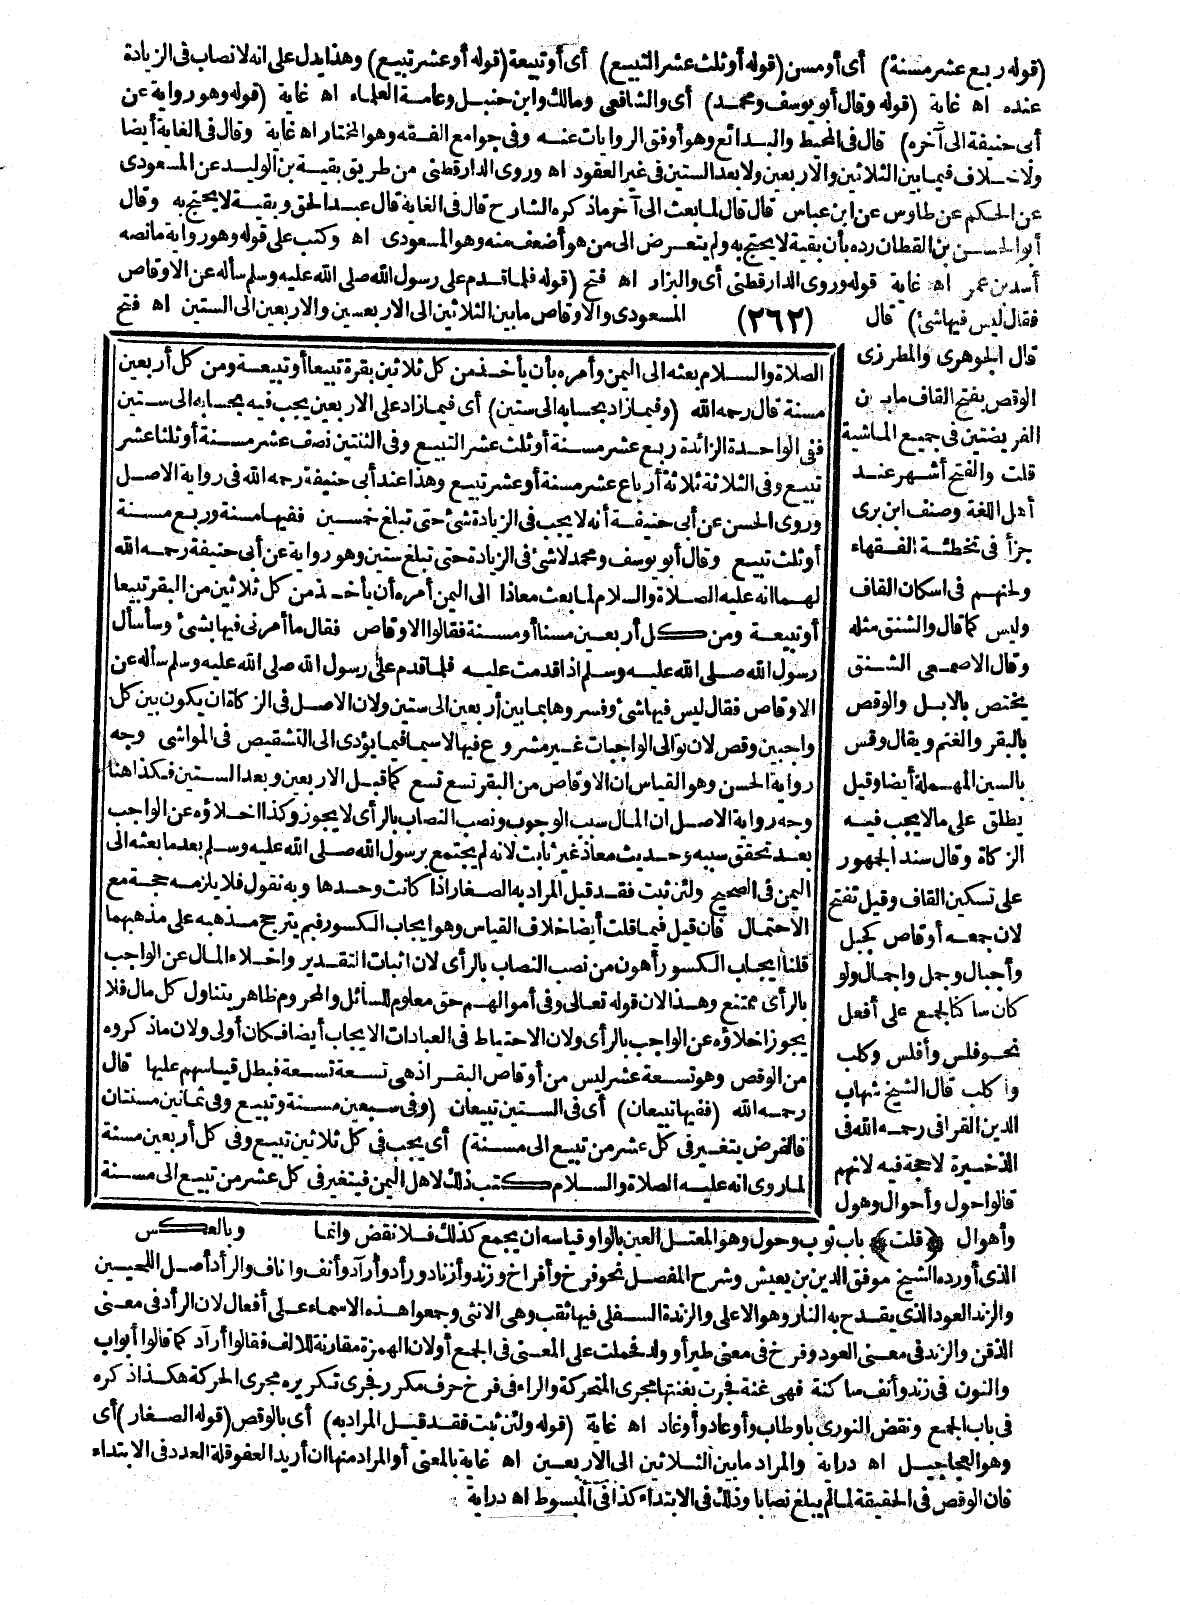 (قوله ربع عشر مسنة) أى أو مسن (قوله أو ثلث عشر التبيع) أى أو تبيعة (قوله أو عشر تبيع) وهذا يدل على انه لا نصاب فى الزيادة
عنده اه غاية (قوله وقال أبو يوسف ومحمد) أى والشافعى ومالك وابن حنبل وعامة العلماء اه غاية (قوله وهو رواية عن
أبى حنيفة الى آخره) قال فى المحيط والبدائع وهو أوفق الروايات عنه وفى جوامع الفقه وهو المختار اه غاية وقال فى الغاية أيضا
ولا خلاف فيما بين الثلاثين والاربعين ولا بعد الستين فى غير العقود اه وروى الدارقطنى من طريق بقية بن الوليد عن المسعودى
عن الحكم عن طاوس عن ابن عباس قال قال لما بعث الى آخر ماذكره الشارح قال فى الغاية قال عبد الحق وبقية لا يحتج به وقال
أبو الحسن بن القطان رده بأن بقية لا يحتج به ولم يتعرض الى من هو أضعف منه وهو المسعودى اه وكتب على قوله وهو رواية مانصه
أسد بن عمر اه غاية قوله وروى الدارقطنى أى والبزار اه فتح (قوله فلما قدم على رسول الله صلى الله عليه وسلم سأله عن الاوقاص
فقال ليس فيها شئ) قال المسعودى والاوقاص ما بين الثلاثين الى الاربعين والاربعين الى الستين اه فتح
(٢٦٢)
قال الجوهرى والمطرزى
الوقص بفتح القاف ما بين
الفريضتين فى جميع الماشية
قلت والفتح أشهر عند
أهل اللغة وصنف ابن برى
جزأ فى تخطئة الفقهاء
ولحنهم فى اسكان القاف
وليس كما قال والشنق مثله
وقال الاصمعى الشنق
يختص بالابل والوقص
بالبقر والغنم ويقال وقس
بالسين المهملة أيضا وقيل
يطلق على مالا يجب فيه
الزكاة وقال سند الجمهور
على تسكين القاف وقيل تفتح
لان جمعه أوقاص كجبل
وأجبال وجمل واجمال ولو
كان ساكنا لجمع على أفعل
نحو فلس وأفلس وكلب
وا كلب قال الشيخ شهاب
الدين القرافى رحمه الله فى
الذخيرة لا حجة فيه لانهم
قالوا حول وأحوال وهول
الصلاة والسلام بعثه الى اليمن وأمره بأن يأخذ من كل ثلاثين بقرة تبيعا أو تبيعة ومن كل أربعين
مسنة قال رحمه الله (وفيما زاد بحسابه الى ستين) أى فيما زاد على الاربعين يجب فيه بحسابه الى ستين
ففى الواحدة الزائدة ربع عشر مسنة أو ثلث عشر التبيع وفى الثنتين نصف عشر مسنة أو ثلثا عشر
تبيع وفى الثلاثة ثلاثة أرباع عشر مسنة أو عشر تبيع وهذا عند أبى حنيفة رحمه الله فى رواية الاصل
وروى الحسن عن أبى حنيفة أنه لا يجب فى الزيادة شئ حتى تبلغ خمسين ففيها مسنة وربع مسنة
أو ثلث تبيع وقال أبو يوسف ومحمد لا شئ فى الزيادة حتى تبلغ ستين وهو رواية عن أبى حنيفة رحمه الله
لهما انه عليه الصلاة والسلام لما بعث معاذا الى اليمن أمره أن يأخذ من كل ثلاثين من البقر تبيعا
أو تبيعة ومن كل أربعين مسنا أو مسنة فقالوا الاوقاص فقال ما أمرنى فيها بشئ وسأسأل
رسول الله صلى الله عليه وسلم اذا قدمت عليه فلما قدم على رسول الله صلى الله عليه وسلم سأله عن
الاوقاص فقال ليس فيها شئ وفسروها بما بين أربعين الى ستين ولان الاصل فى الزكاة ان يكون بين كل
واجبين وقص لان توالى الواجبات غير مشروع فيها لاسيما فيما يؤدى الى التشقيص فى المواشى وجه
رواية الحسن وهو القياس ان الاوقاص من البقر تسع تسع كما قبل الاربعين وبعد الستين فكذا هنا
وجه رواية الاصل ان المال سبب الوجوب ونصب النصاب بالرأى لا يجوز وكذا اخلاؤه عن الواجب
بعد تحقق سببه وحديث معاذ غير ثابت لانه لم يجتمع برسول الله صلى الله عليه وسلم بعد ما بعثه الى
اليمن فى الصحيح ولئن ثبت فقد قيل المراد به الصغار اذا كانت وحدها وبه نقول فلا يلزمه حجة مع
الاحتمال فان قيل فيما قلت أيضا خلاف القياس وهو ايجاب الكسور فبم يترجح مذهبه على مذهبهما
قلنا ايجاب الكسور أهون من نصب النصاب بالرأى لان اثبات التقدير واخلاء المال عن الواجب
بالرأى ممتنع وهذا لان قوله تعالى وفى أموالهم حق معلوم للسائل والمحروم ظاهر يتناول كل مال فلا
يجوز اخلاؤه عن الواجب بالرأى ولان الاحتياط فى العبادات الايجاب أيضا فكان أولى ولان ماذكروه
من الوقص وهو تسعة عشر ليس من أوقاص البقر اذهى تسعة تسعة فبطل قياسهم عليها قال
رحمه الله (ففيها تبيعان) أى فى الستين تبيعان (وفى سبعين مسنة وتبيع وفى ثمانين مسنتان
فالفرض يتغير فى كل عشر من تبيع الى مسنة) أى يجب فى كل ثلاثين تبيع وفى كل أربعين مسنة
لما روى انه عليه الصلاة والسلام كتب ذلك لاهل اليمن فيتغير فى كل عشر من تبيع الى مسنة
وبالعكس
وأهوال (قلت) باب ثوب وحول وهو المعتل العين بالواو قياسه ان يجمع كذلك فلا نقض وانما
الذى أورده الشيخ موفق الدين بن يعيش وشرح المفصل نحو فرخ وأفراخ وزند وأزناد ورأد وأرآد وأنف واناف والرأد أصل اللحيين
والزند العود الذى يقدح به النار وهو الاعلى والزندة السفلى فيها ثقب وهى الانثى وجمعوا هذه الاسماء على أفعال لان الرأد فى معنى
الذقن والزند فى معنى العود وفرخ فى معنى طير أو ولد فحملت على المعنى فى الجمع أو لان الهمزة مقارنة للالف فقالوا أرآد كما قالوا أبواب
والنون فى زند وأنف ساكنة فهى غنة فجرت بغنتها مجرى المتحركة والراء فى فرخ حرف مكرر فجرى تكريره مجرى الحركة هكذا ذكره
فى باب الجمع ونقض النورى باوطاب وأوعاد وأوغاد اه غاية (قوله ولئن ثبت فقد قيل المراد به) أى بالوقص (قوله الصغار) أى
وهو العجاجيل اه دراية والمراد ما بين الثلاثين الى الاربعين اه غاية بالمعنى أو المراد منها ان أريد العفو قلة العدد فى الابتداء
فان الوقص فى الحقيقة لما لم يبلغ نصابا وذلك فى الابتداء كذا فى المبسوط اه دراية